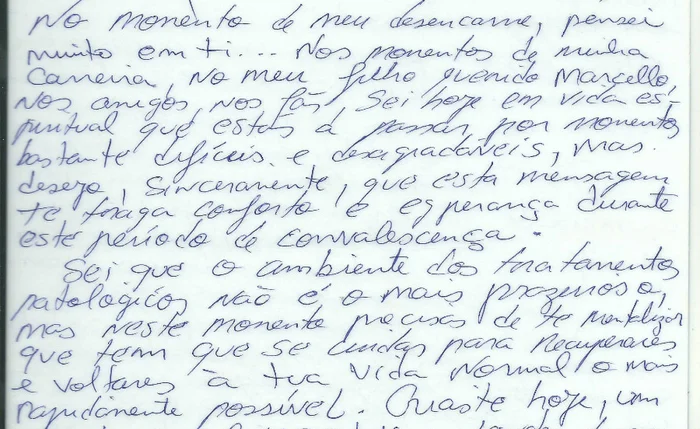 No momento de meu desencarne, pensei
muito em ti... Nos momentos de minha
Carreira, No meu filho querido Marcello,
nos amigos, nos fãs, Sei hoje em vida es-
piritual que estás a passar por momentos
bastante difíceis e desagradáveis, mas
desejo, sinceramente, que esta mensagem
te traga conforto e esperança durante
este período de convalescença.
Sei que o ambiente dos tratamentos
patológicos não é o mais prazeroso,
mas neste momento precisas de te mentalizar
que tem que se cuidar para recuperares
e voltares à tua vida normal o mais
rapidamente possível. hoje, um